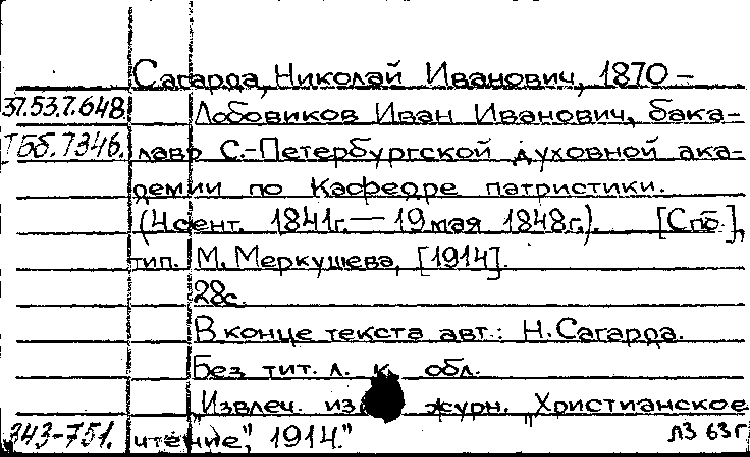 Сагарда, Николай Иванович, 1870 –
37.53.7.648. Лобовиков Иван Иванович, бака-
ТБб.7346. лавр С.-Петербургской духовной ака-
демии по кафедре патристики.
(4 сент. 1841г. — 19 мая 1848г.). [Спб.],
тип. М. Меркушева, [1914].
28с.
В конце текста авт.: Н. Сагарда.
Без тит. л. и обл.
"Извлеч. из журн. "Христианское
343-751. чтение", 1914."
ЛЗ 63г